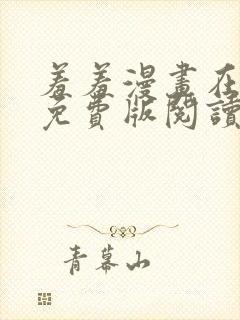 羞羞漫畫在
免費版閱讀
青幕山